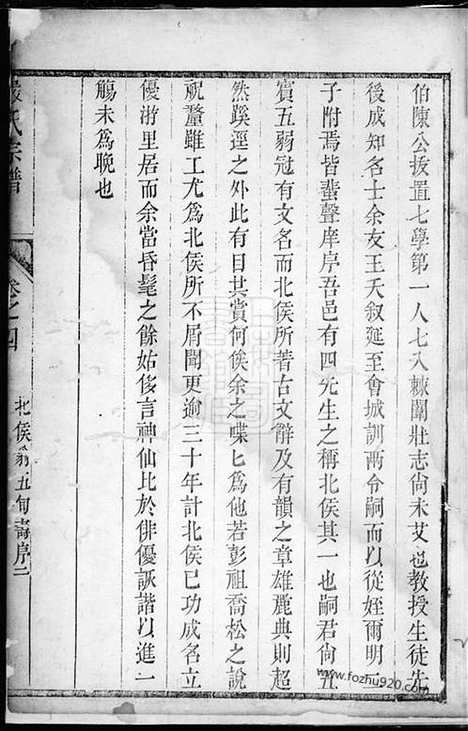 伯陳公拔置七學第一人七入棘闈壯志尚未艾也教授生徒先
後成知名士余友王天叙延至會城訓兩令嗣而以從姪爾明
子附焉皆蜚聲庠序吾邑有四先生之稱北侯其一也嗣君尚五
賓五弱冠有文名而北侯所著古文辭及有韻之章雄麗典則超
然蹊逕之外此有目其賞何俟余之喋匕為他若彭祖喬松之說
祝釐雖工尤為北侯所不屑聞更逾三十年計北侯已功成名立
優游里居而余當昏髦之餘姑侈言神仙比於俳優詼諧以進一
觴未為晚也
氏宗譜
卷之四
北侯翁五旬壽序二
www.fozhu920.com